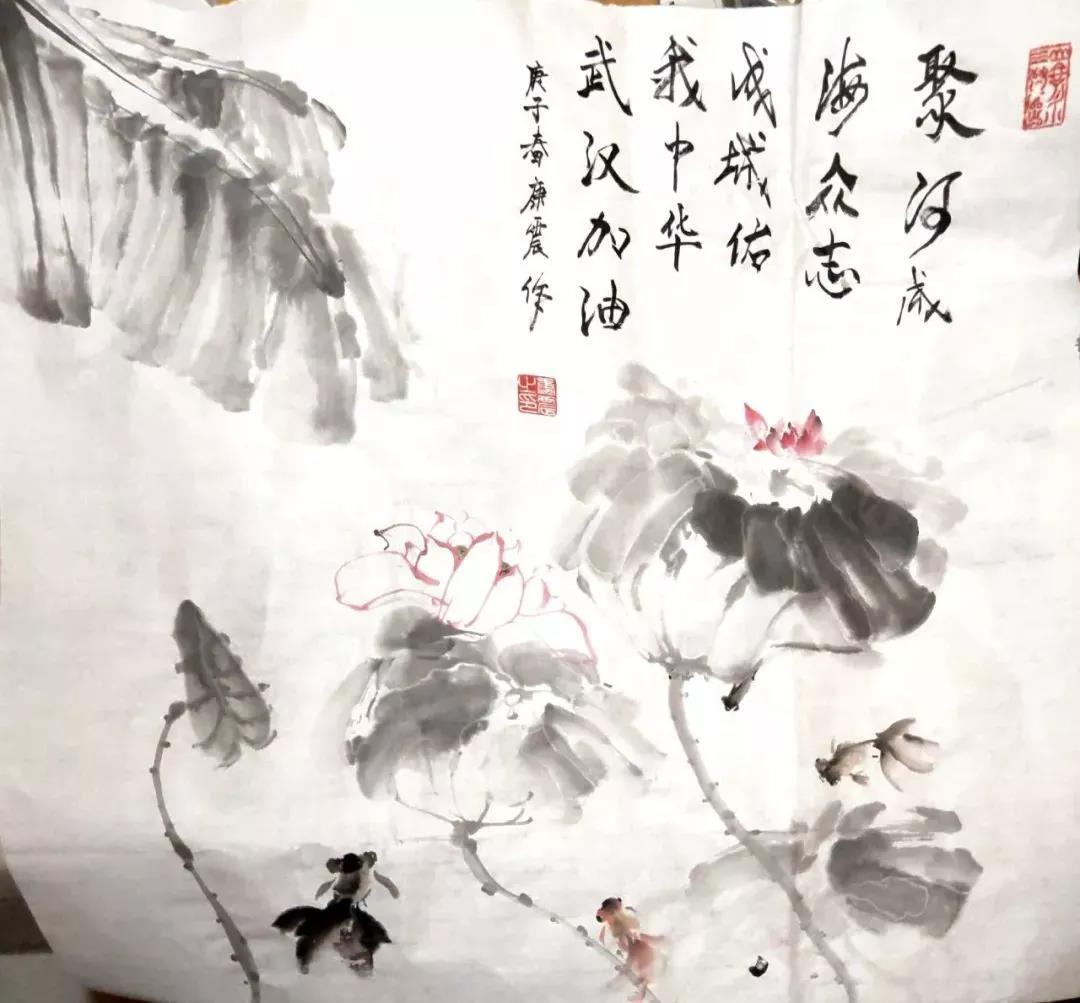 聚河成
海众志
成城佑
我中华
武汉加油
庚子春康震作